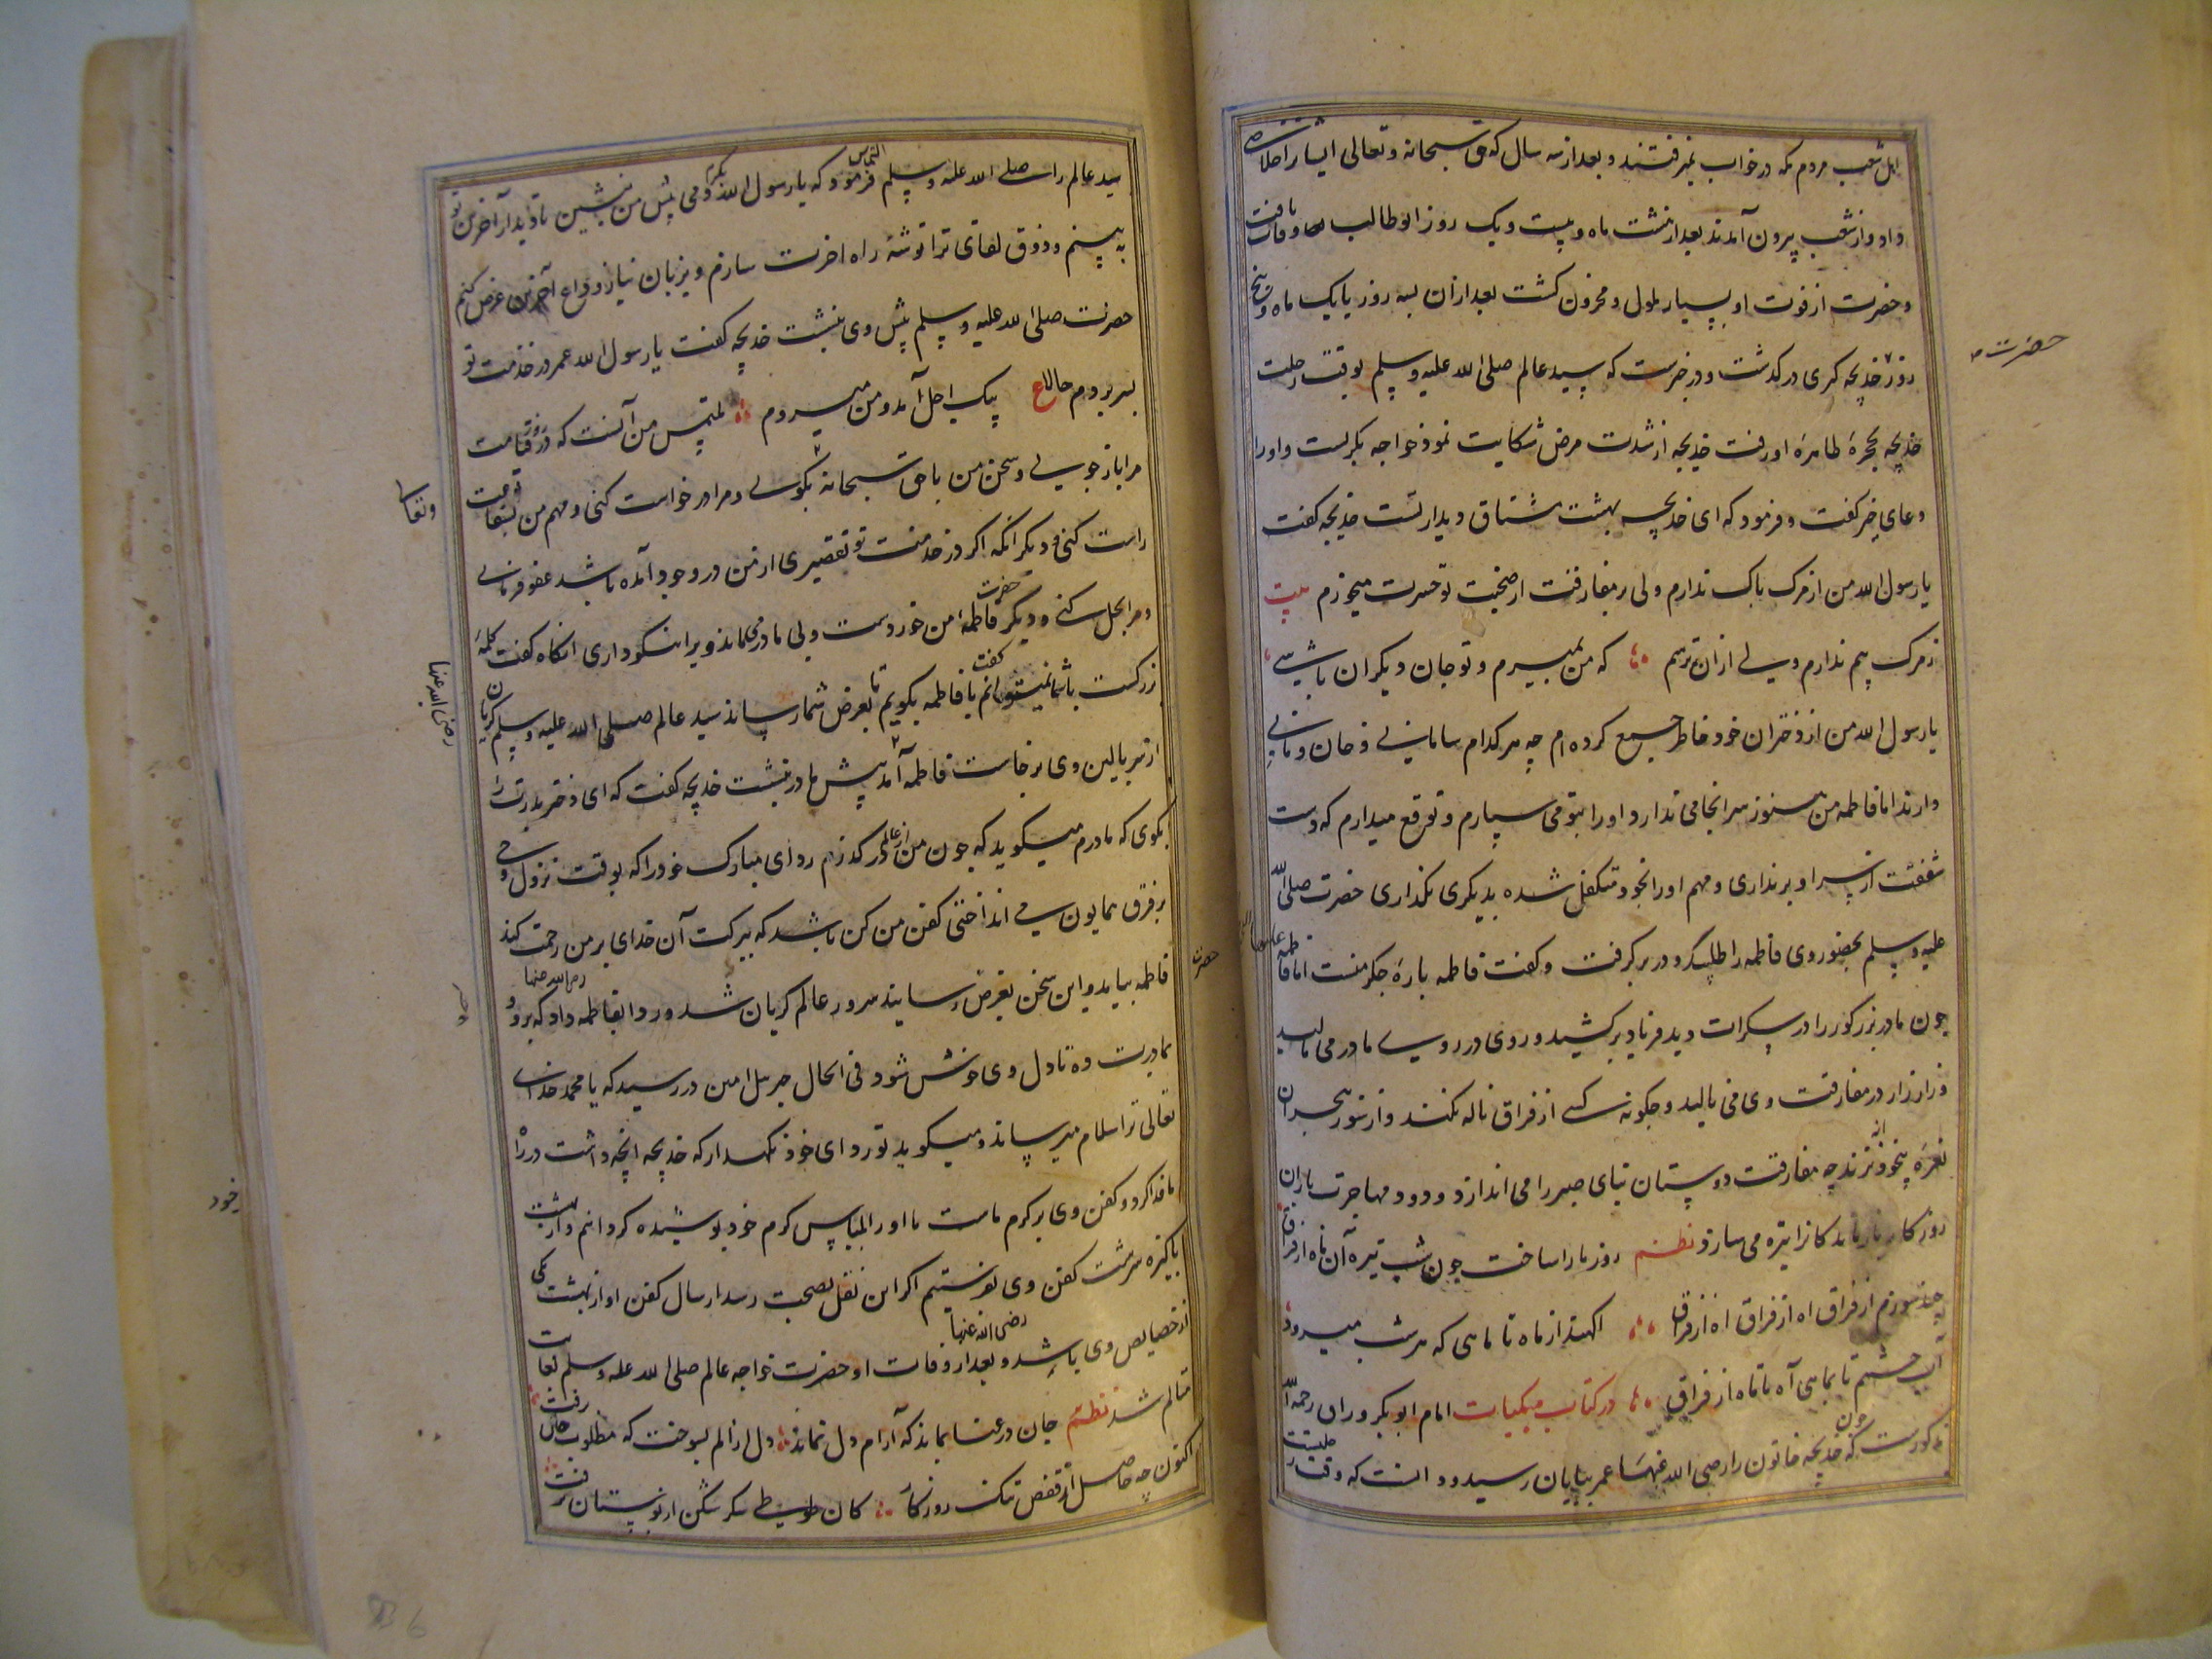 اهل شعب مردم مکه در خواب نمیرفتند و بعد از سه سال که حق سبحانه و تعالی ایشانرا خلاصی
داد و از شعب بیرون آمدند بعد از هشت ماه و بیست و یک روز ابوطالب وفات یافت
و حضرت از فوت او بسیار ملول و محزون کشت بعد از آن بسه روز یا یک ماه و پنج
روز خدیجه کبری در کذشت و در خبرست که سید عالم صلی الله علیه وسلم بوقت رحلت
خدیجه بحجرۀ طاهرۀ او رفت خدیجه از شدت مرض شکایت نمود خواجه بکریست و او را
دعای خیر کفت و فرمود که ای خدیجه بهشت مشتاق دیدار تست خدیجه کفت
یا رسول الله من از مرک باک ندارم ولی بر مفارقت از صحبت تو حسرت میخورم بیت
ز مرک بیم ندارم ولی از آن ترسم که من بمیرم و تو جان دیکران باشی
یا رسول الله من از دختران خود خاطر جمع کرده ام چه هر کدام سامانی و خان و مانی
دارند اما فاطمه من هنوز سرانجامی ندارد او را بتو می سپارم و توقع میدارم که دست
شفقت از سر او برنداری و مهم او را بخود متکفل شده بدیکری نکذاری حضرت صلی الله
علیه وسلم بحضور وی فاطمه را طلبید و در بر کرفت و کفت فاطمه پارۀ جکر منست اما فاطمه
چون مادر بزرکوار را در سکرات دید فریاد برکشید و روی در روی مادر می مالید
و زار زار در مفارقت وی می نالید و چکونه کسی از فراق ناله نکند و از سوز هجران
نعرۀ بیخودانه نزند چه مفارقت دوستان بنای صبر را می اندازد و دود مهاجرت یاران
روزکار را تیره می سازد نظم روز ما را ساخت چون شب تیره آن ماه از فراق
چند سوزم از فراق اه از فراق اه از فراق اکهند از ماه تا ماهی که هر شب میرود
آب چشمم تا بماهی آه تا ماه از فراق در کتاب مبکیات امام ابوبکر وراق رحمه الله
مذکورست که چون خدیجه خاتون را رضی الله عنها عمر بپایان رسید و دانست که وقت رحلتست
حضرت
سید عالم را صلی الله علیه وسلم التماس فرمود که یا رسول الله دمی پیش من بنشین تا دیدار آخرین تو
به بینم و ذوق لقای ترا توشۀ راه اخرت سازم و بزبان نیاز وداع آخرین عرض کنم
حضرت صلی الله علیه وسلم پیش وی بنشست خدیجه کفت یا رسول الله عمر در خدمت تو
بسر بردم حالا ع پیک اجل آمد و من میروم ملتمس من آنست که در روز قیامت
مرا باز جویی و سخن من با حق سبحانه و تعالی بکویی و مرا درخواست کنی و مهم من بشفاعت
راست کنی و دیکر آنکه اکر در خدمت تو تقصیری از من در وجود آمده باشد عفو فرمائی
و مرا بحل کنی و دیکر حضرت فاطمه من خوردست و بی مادر می ماند ویرا نیکو داری انکاه کفت کلمۀ
دیکرست با شما نمیتوانم کفت با فاطمه بکویم تا بعرض شما رساند سید عالم صلی الله علیه وسلم کریان
از سر بالین وی برخاست فاطمه آمد پیش مادر بنشست خدیجه کفت که ای دختر پدرت را
بکوی که مادرم میکوید که چون من از عالم درکذرم ردای مبارک خود را که بوقت نزول وحی
بر فرق همایون می انداختی کفن من کن باشد که ببرکت آن خدای بر من رحمت کند
فاطمه بیامد و این سخن بعرض رسانید سرور عالم کریان شد و ردا بفاطمه داد که برو و
بمادرت ده تا دل وی خوش شود فی الحال جبرئیل امین در رسید که یا محمد خدای
تعالی ترا سلام میرساند و میکوید تو ردای خود نکهدار که خدیجه انچه داشت در راه
ما فدا کرد و کفن وی بر کرم ماست ما او را بلباس کرم خود پوشیده کردانیم و از بهشت
پاکیزه سرشت کفن وی بفرستیم اکر این نقل بصحت رسد ارسال کفن او از بهشت یکی
از خصایص وی باشد و بعد از وفات او رضی الله عنها حضرت خواجه عالم صلی الله علیه وسلم بغایت
متالم شد نظم جان در عنا بماند که آرام دل نماند دل از الم بسوخت که مطلوب جان رفت
اکنون چه حاصل از قفص تنک روزکار کان طوطی شکر شکن از بوستان برفت
رضی الله عنها
حضرت
خود